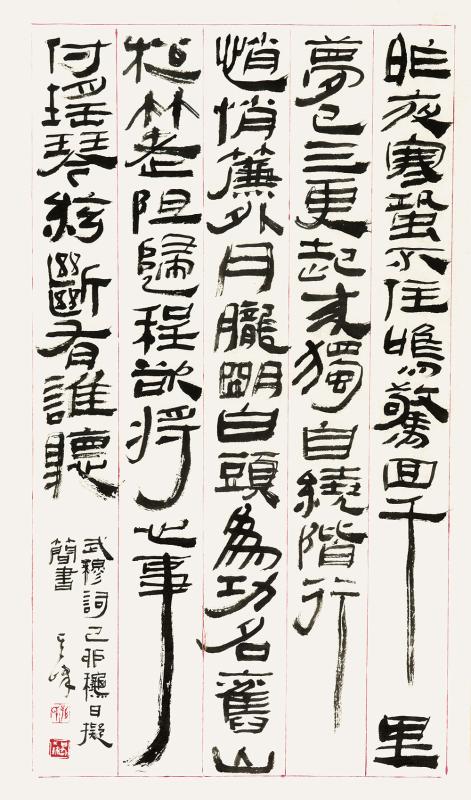 昨夜寒蛩不住鳴驚回千里
夢已三更起來獨自繞階行
悄悄簾外月朧明白頭為功名舊山
松林老阻歸程欲將心事
付瑤琴々絃斷有誰聽
武穆詞己卯穐日擬
簡書